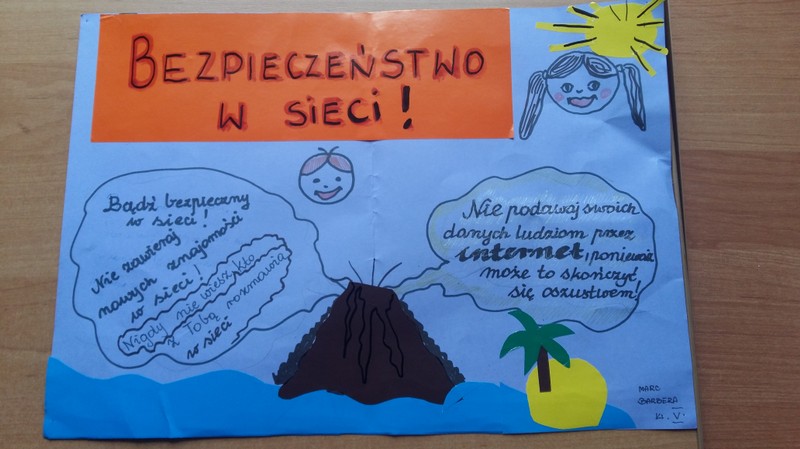 BEZPIECZEŃSTWO
W SIECI!
Bądź bezpieczny
w sieci!
Nie zawieraj
nowych znajomości
w sieci!
Nigdy nie wiesz, kto
z Tobą rozmawia
w sieci
Nie podawaj swoich
danych ludziom przez
internet, ponieważ
może to skończyć
się oszustwem!
MARC
BARBERA
Kl. V